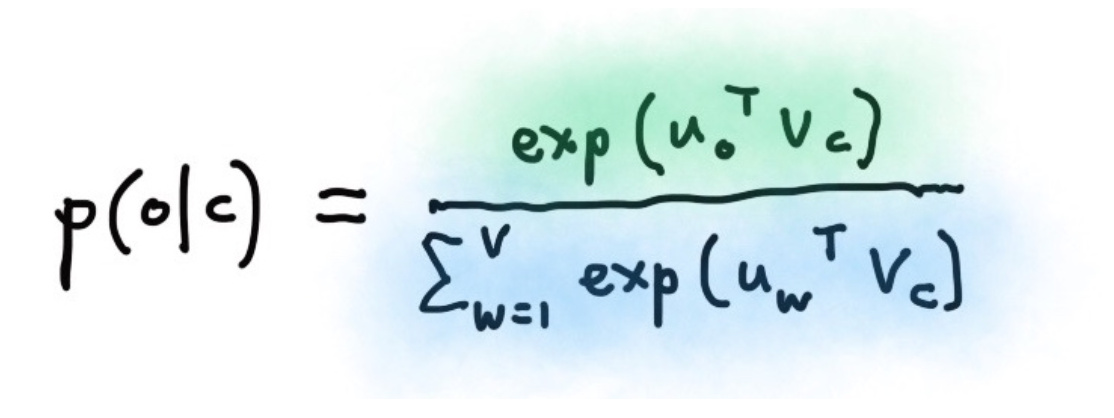 p(o|c) = exp(u_o^T v_c) / ∑_{w=1}^V exp(u_w^T v_c)